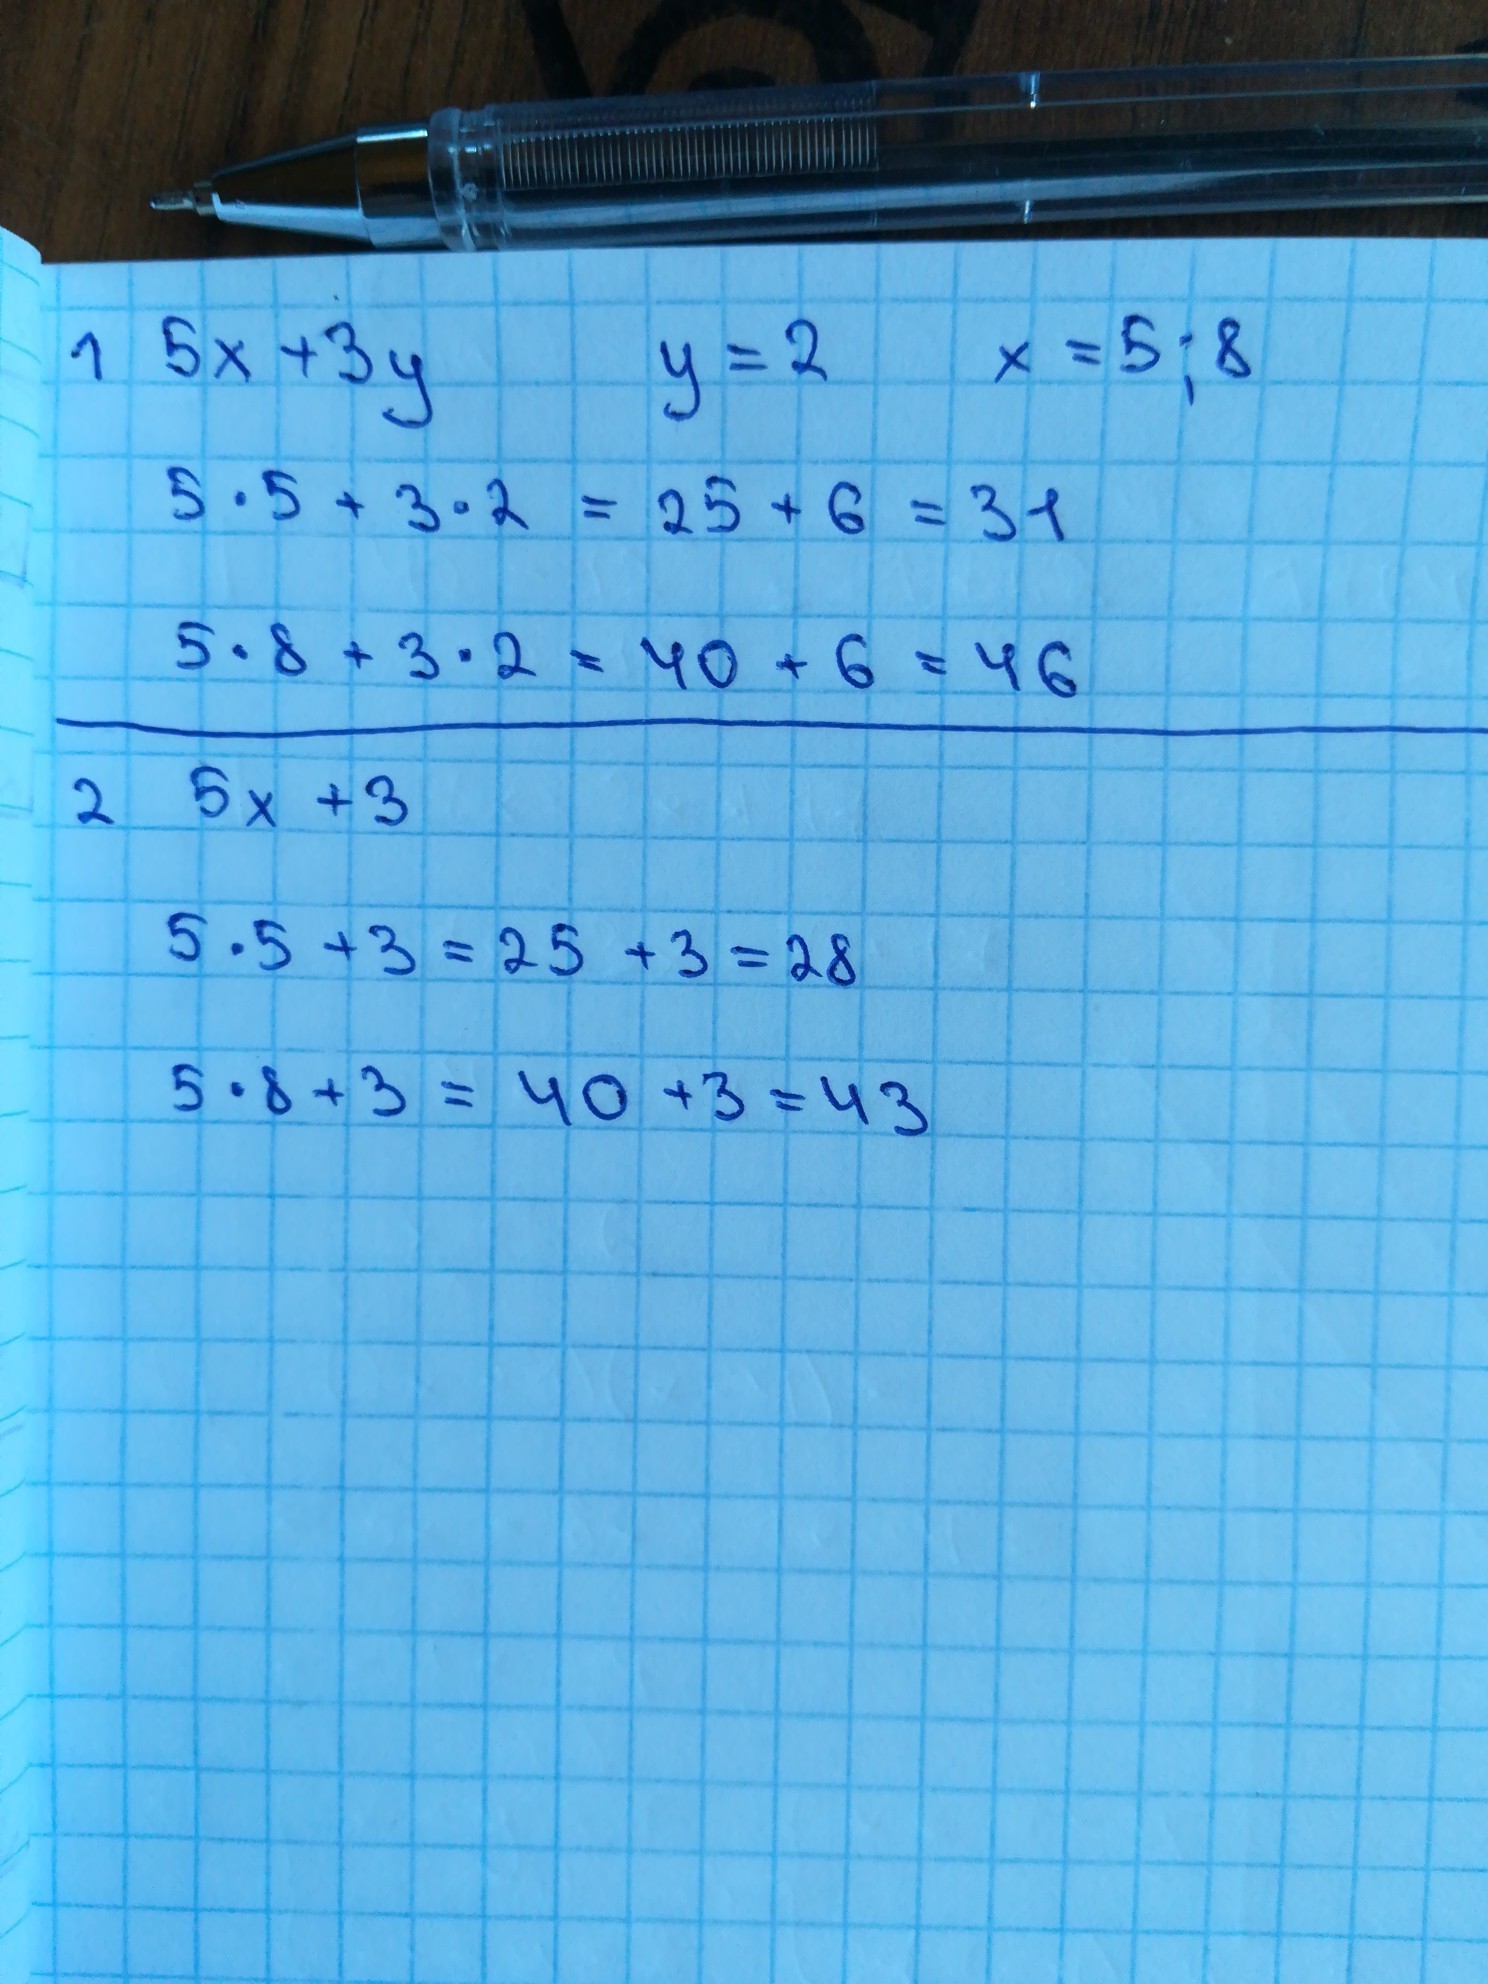 1 5x + 3y y = 2 x = 5; 8
5 · 5 + 3 · 2 = 25 + 6 = 31
5 · 8 + 3 · 2 = 40 + 6 = 46
2 5x + 3
5 · 5 + 3 = 25 + 3 = 28
5 · 8 + 3 = 40 + 3 = 43